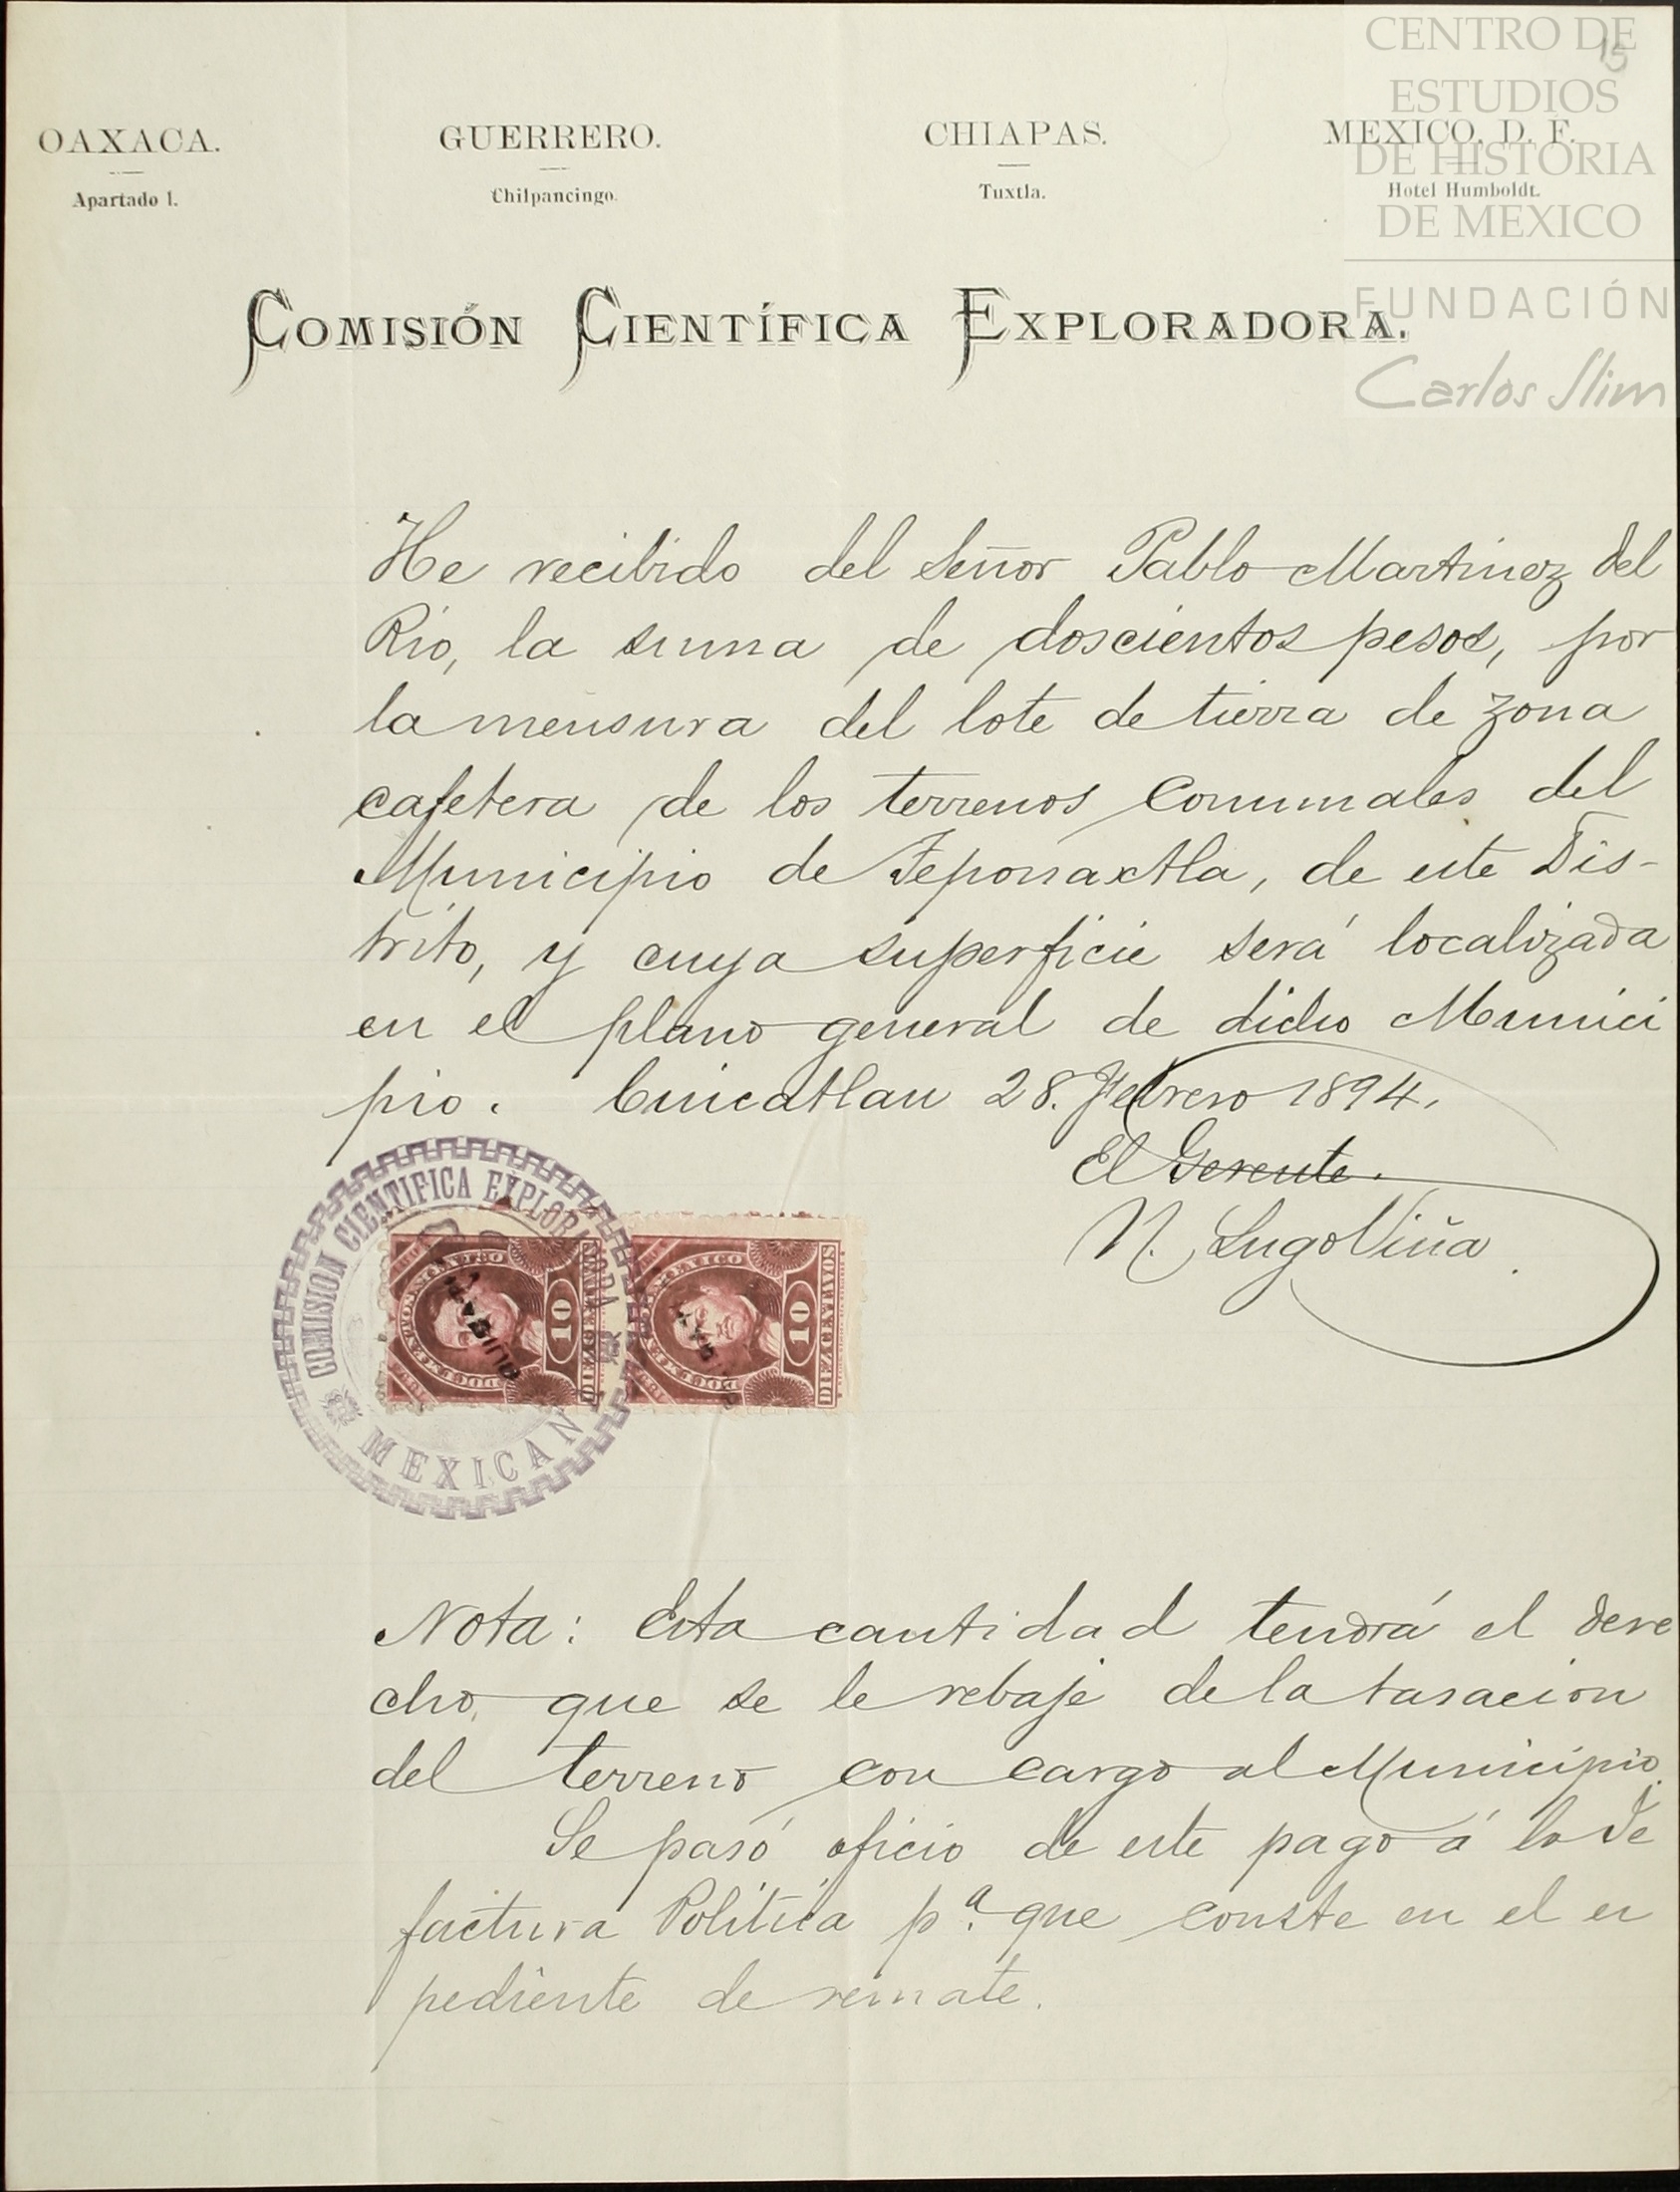 CENTRO DE
ESTUDIOS
DE HISTORIA
DE MEXICO
FUNDACIÓN
Carlos Slim
15
OAXACA. GUERRERO. CHIAPAS. MEXICO, D. F.
Apartado 1. Chilpancingo. Tuxtla. Hotel Humboldt.
COMISIÓN CIENTÍFICA EXPLORADORA.
He recibido del Señor Pablo Martinez del
Rio, la suma de doscientos pesos, por
la mensura del lote de tierra de zona
cafetera de los terrenos comunales del
Municipio de Teponaxtla, de este Dis-
trito, y cuya superficie será localizada
en el plano general de dicho Munici
pio. Cuicatlan 28. Febrero 1894.
El Gerente.
N. Lugo Viña
COMISION CIENTIFICA EXPLORADORA
MEXICANA
MEXICO
10
DIEZ CENTAVOS
MEXICO
10
DIEZ CENTAVOS
Nota: Esta cantidad tendrá el dere
cho, que se le rebaje de la tasacion
del terreno con cargo al Municipio.
Se pasó oficio de este pago á la Je
factura Politica pª. que conste en el es
pediente de remate.